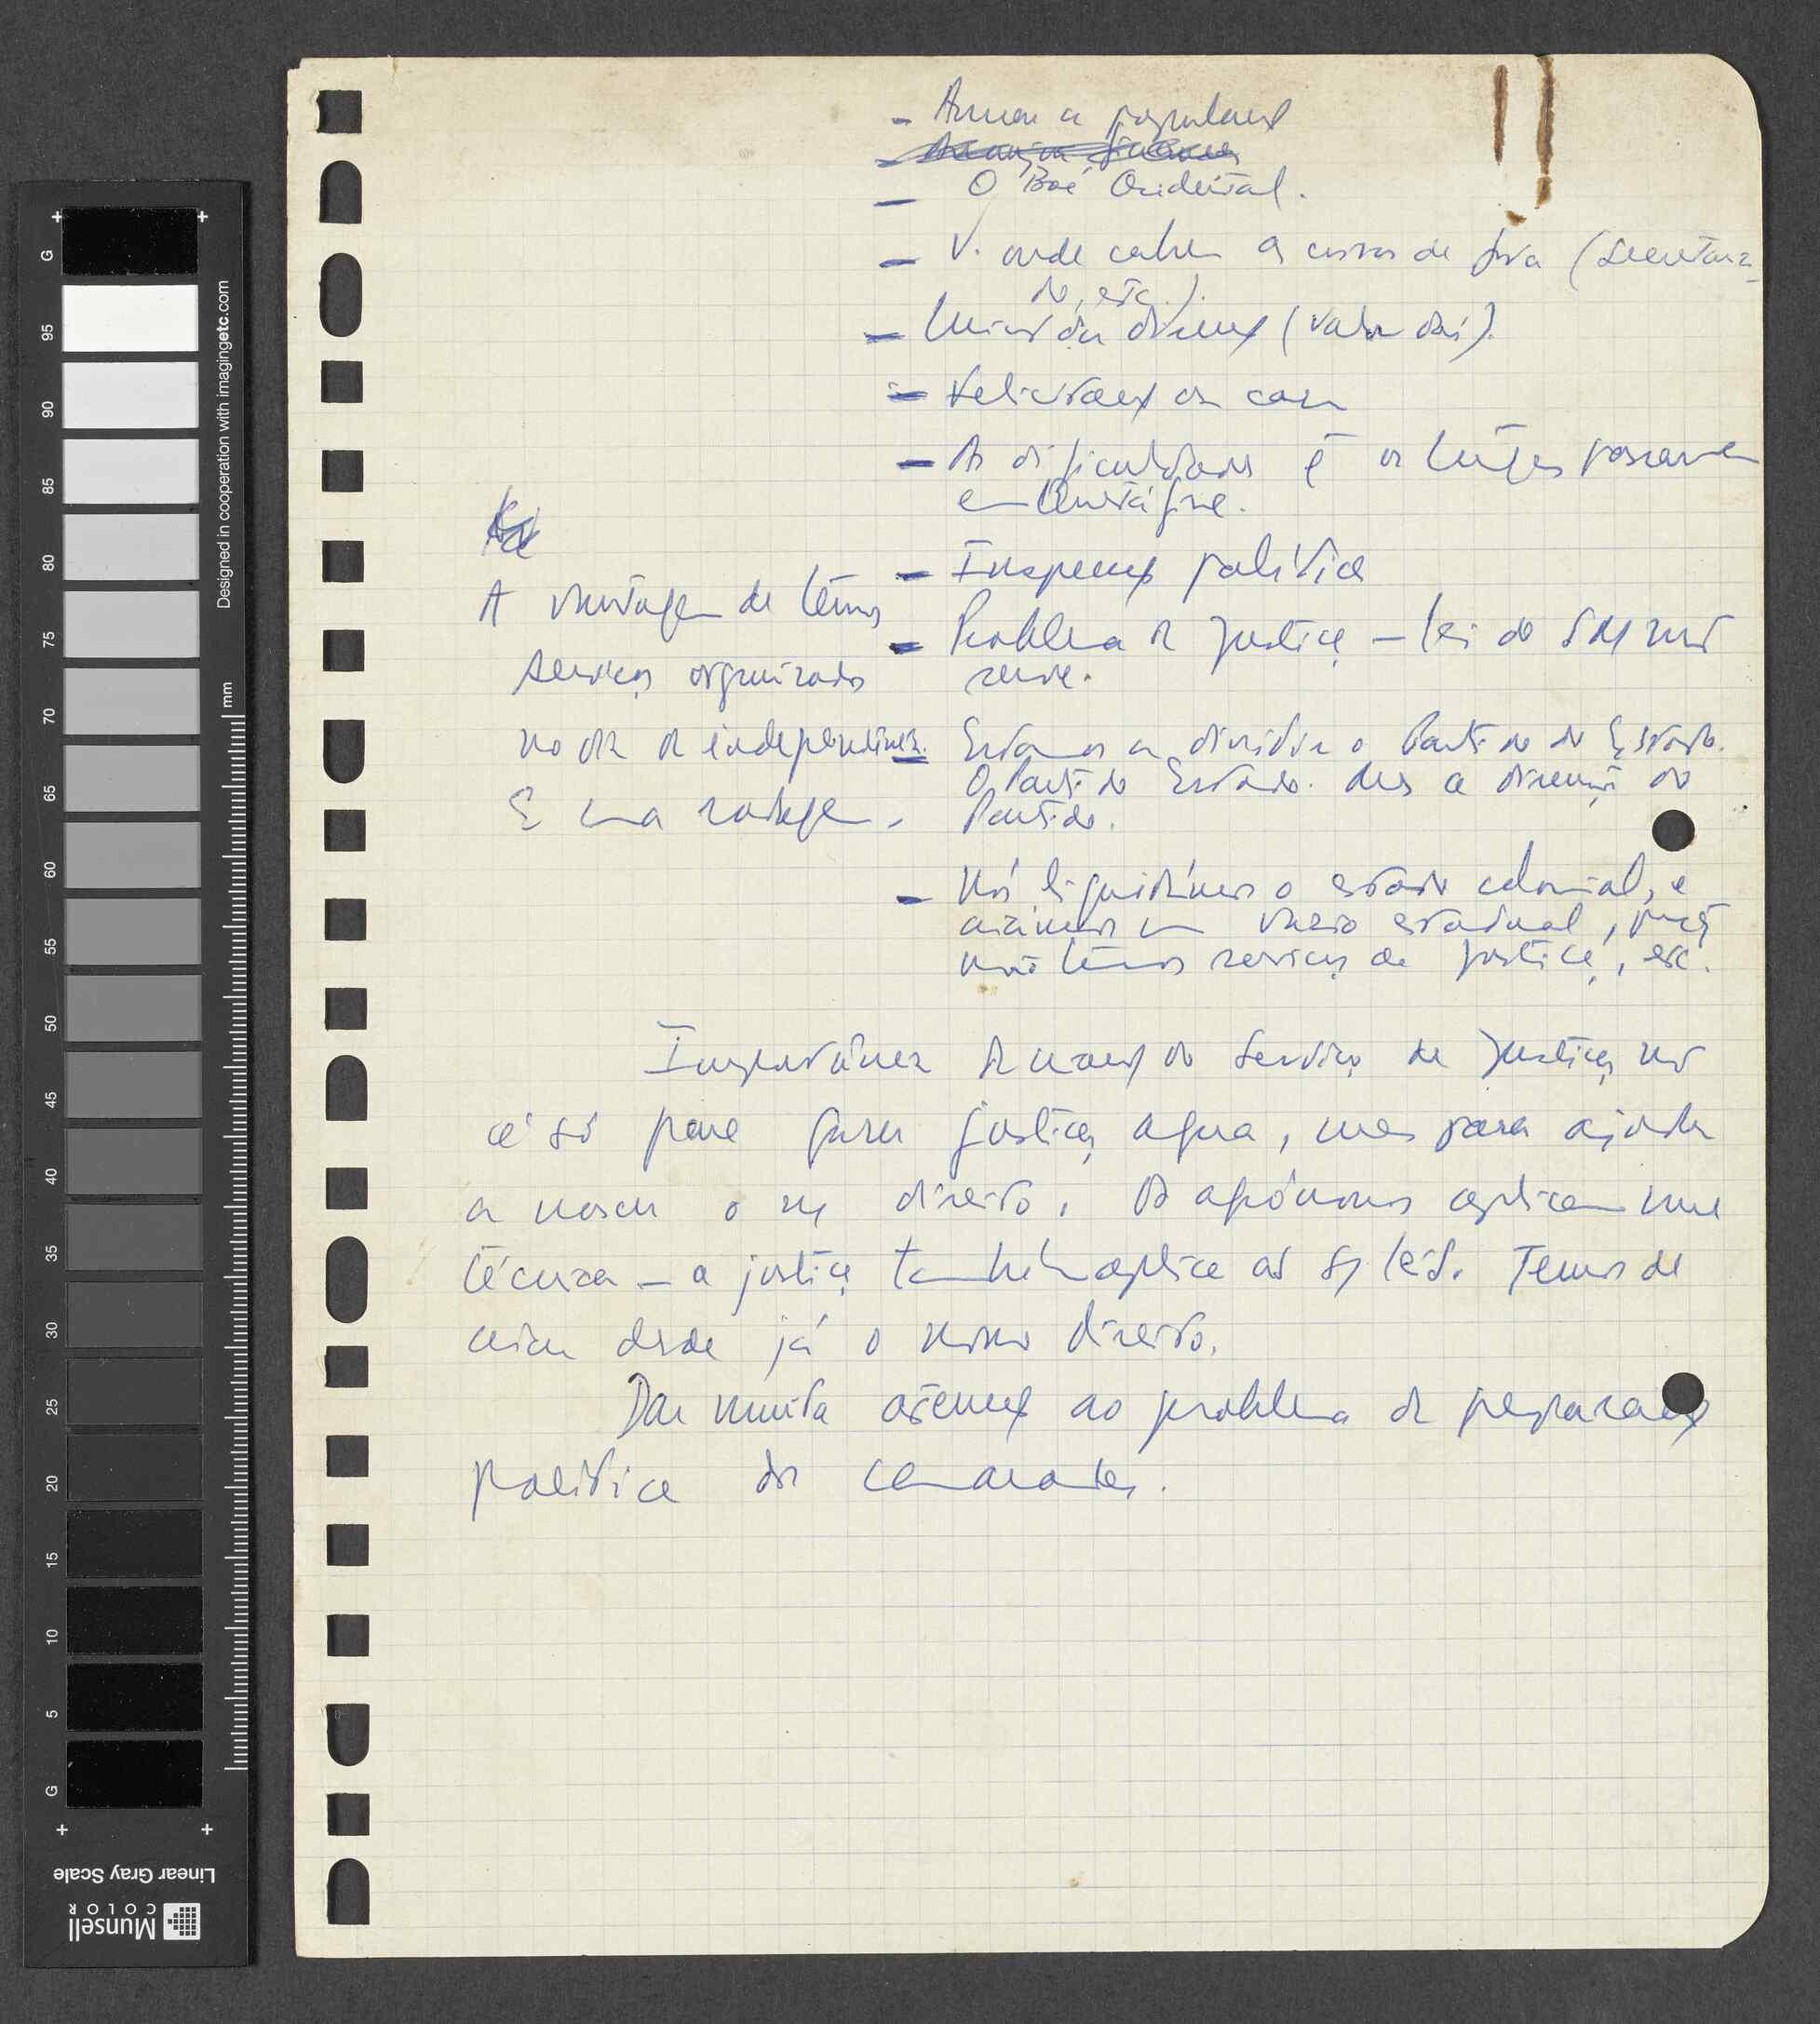 - Armar a população
- O Boé Ocidental.
- V. onde cabem os cursos de fora (Secretaria-
do, etc.).
- (vala daí).
- Felicitações da casa
- As dificuldades é as lutas passarem
em
- Inspecção política
- Problema da Justiça – lei do SM não
serve.
- Estamos a dividir o Partido do Estado.
O Partido Estado. Mas a direcção do
Partido.
- Nós liquidámos o estado colonial, e
criamos um vazio estadual, pois
não temos serviços de justiça, etc.
A vantagem de termos
serviços organizados
no dia da independência.
É uma
Importância da criação do Serviço de Justiça, não
é só para fazer justiça agora, mas para ajudar
a nascer o n/ direito. Os agrónomos aplicam uma
técnica – a justiça também aplica as s/ leis. Temos de
criar desde já o nosso direito.
Dar muita atenção ao problema da preparação
política dos camaradas.
G
95
90
85
80
75
70
65
60
55
50
45
40
35
30
25
20
15
10
5
G
mm
Designed in cooperation with imagingetc.com
Linear Gray Scale
Munsell
COLOR